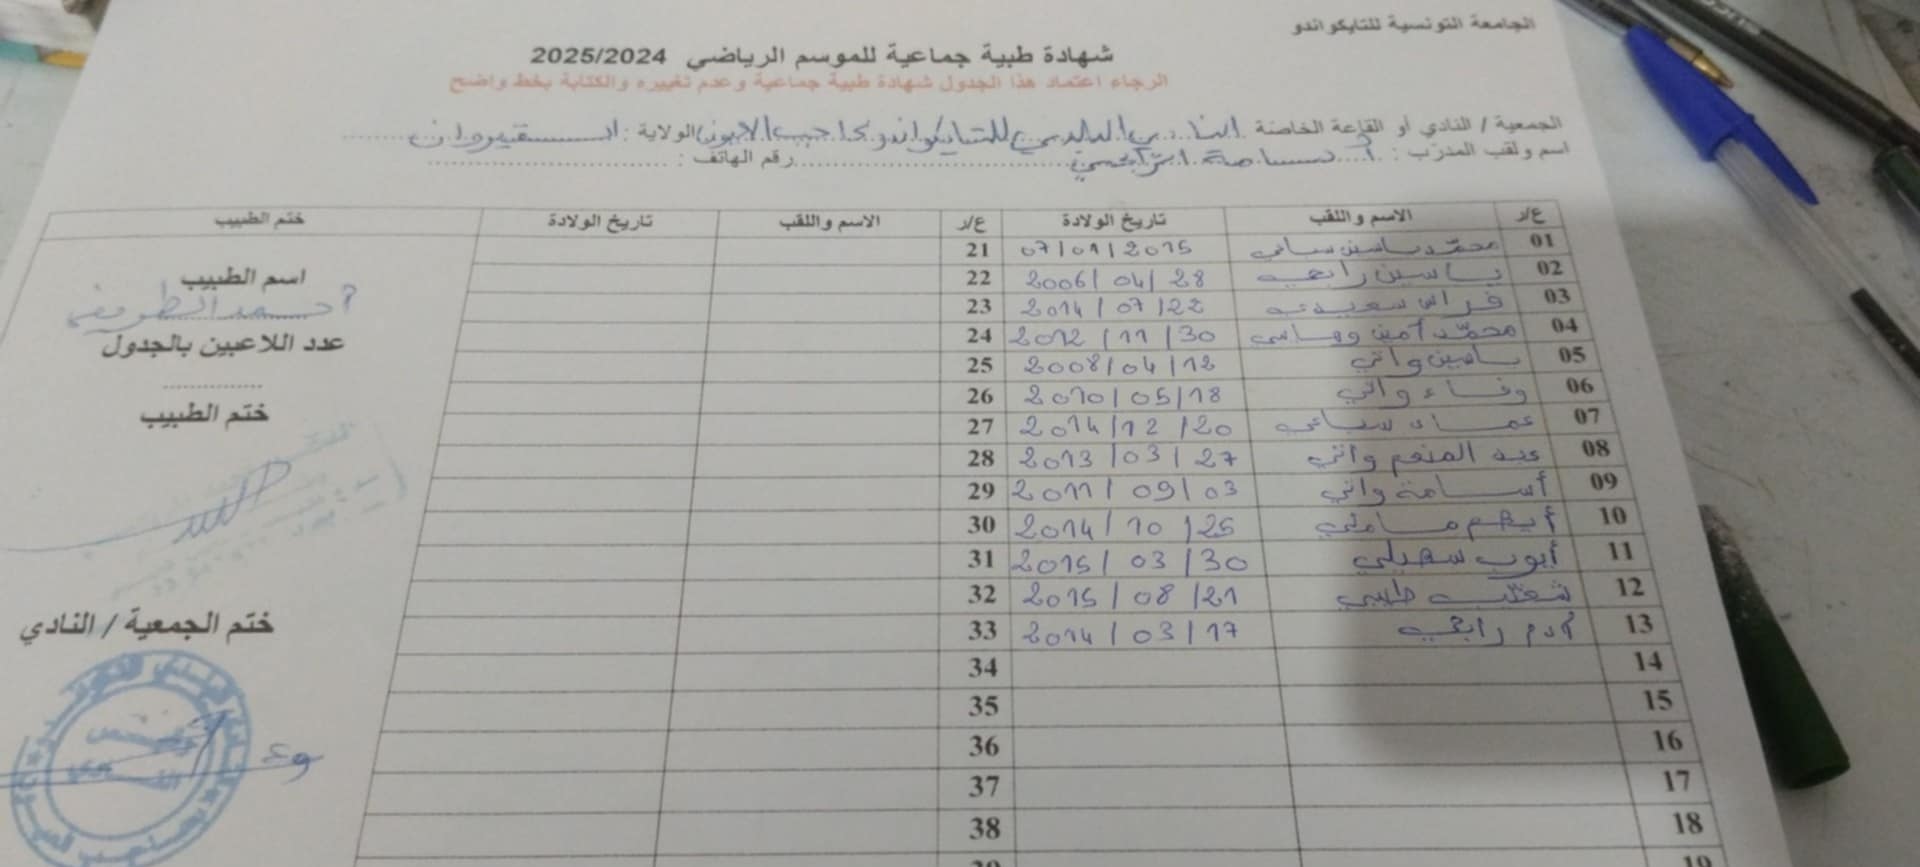 الجامعة التونسية للتايكواندو
شهادة طبية جماعية للموسم الرياضي 2025/2024
الرجاء اعتماد هذا الجدول شهادة طبية جماعية وعدم تغييره والكتابة بخط واضح
الجمعية / النادي أو القاعة الخاصة النادي البلدي للتايكواندو بحاجب العيون الولاية : القيروان
اسم ولقب المدرّب : أسامة الرابحي رقم الهاتف :
ع/ر الاسم واللقب تاريخ الولادة ع/ر الاسم واللقب تاريخ الولادة ختم الطبيب
01 محمّد ياسين سباعي 07/01/2015 21
02 ياسين رابحي 2006/04/28 22
03 فراس سعيدي 2014/07/22 23
04 محمّد أمين 2012/11/30 24
05 يامين واني 2008/04/12 25
06 وفاء واني 2010/05/18 26
07 عماد سباعي 2014/12/20 27
08 عبد المنعم واني 2013/03/27 28
09 أسامة واني 2011/09/03 29
10 أيهم 2014/10/25 30
11 أيوب سهيلي 2015/03/30 31
12 طيبي 2015/08/21 32
13 آدم رابحي 2014/03/17 33
14 34
15 35
16 36
17 37
18 38
19 39
اسم الطبيب
أحمد الطريفي
عدد اللاعبين بالجدول
ختم الطبيب
ختم الجمعية / النادي